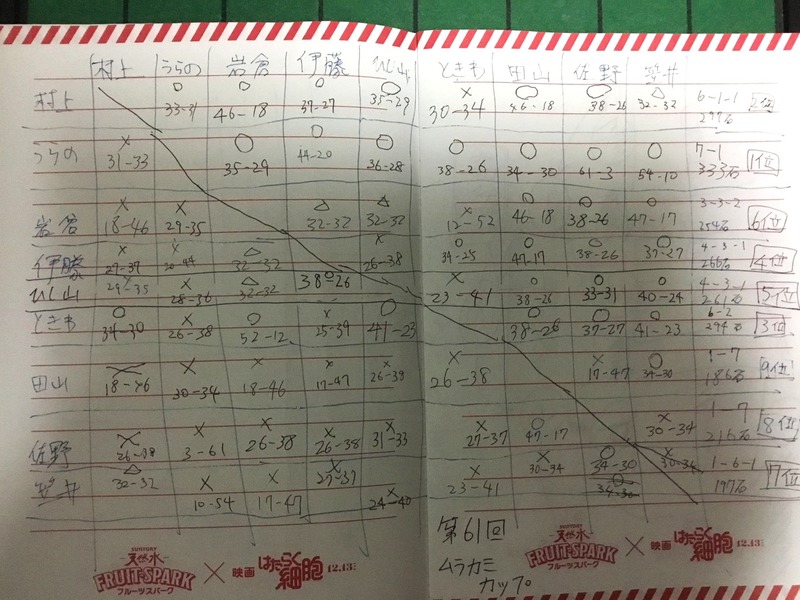 村上 うらの 岩倉 伊藤 ひし山 ときも 田山 佐野 笠井
村上 ○ 33-31 ○ 46-18 ○ 37-27 ○ 35-29 × 30-34 ○ 46-18 ○ 38-26 △ 32-32 6-1-1 297石 2位
うらの × 31-33 ○ 35-29 ○ 44-20 ○ 36-28 ○ 38-26 ○ 34-30 ○ 61-3 ○ 54-10 7-1 333石 1位
岩倉 × 18-46 × 29-35 △ 32-32 △ 32-32 × 12-52 ○ 46-18 ○ 38-26 ○ 47-17 3-3-2 254石 6位
伊藤 × 27-37 × 20-44 △ 32-32 × 26-38 ○ ○ 47-17 ○ 38-26 ○ 37-27 4-3-1 266石 4位
ひし山 × 29-35 × 28-36 △ 32-32 ○ 38-26 × 23-41 ○ 38-26 ○ 33-31 ○ 40-24 4-3-1 261石 5位
ときも ○ 34-30 × 26-38 ○ 52-12 × 25-39 ○ 41-23 ○ 38-26 ○ 37-27 ○ 41-23 6-2 294石 3位
田山 × 18-46 × 30-34 × 18-46 × 17-47 × × 26-38 × 17-47 ○ 34-30 1-7 186石 9位
佐野 × 26-38 × 3-61 × 26-38 × 26-38 × 31-33 × 27-37 ○ 47-17 × 30-34 1-7 216石 8位
笠井 △ 32-32 × 10-54 × 17-47 × 27-37 × 24-40 × 23-41 × 30-34 ○ 34-30 1-6-1 197石 7位
第61回
ムラカミ
カップ
SUNTORY
天然水
FRUIT・SPARK
フルーツスパーク
× 映画 はたらく細胞 12.13
SUNTORY
天然水
FRUIT・SPARK
フルーツスパーク
× 映画 はたらく細胞 12.13